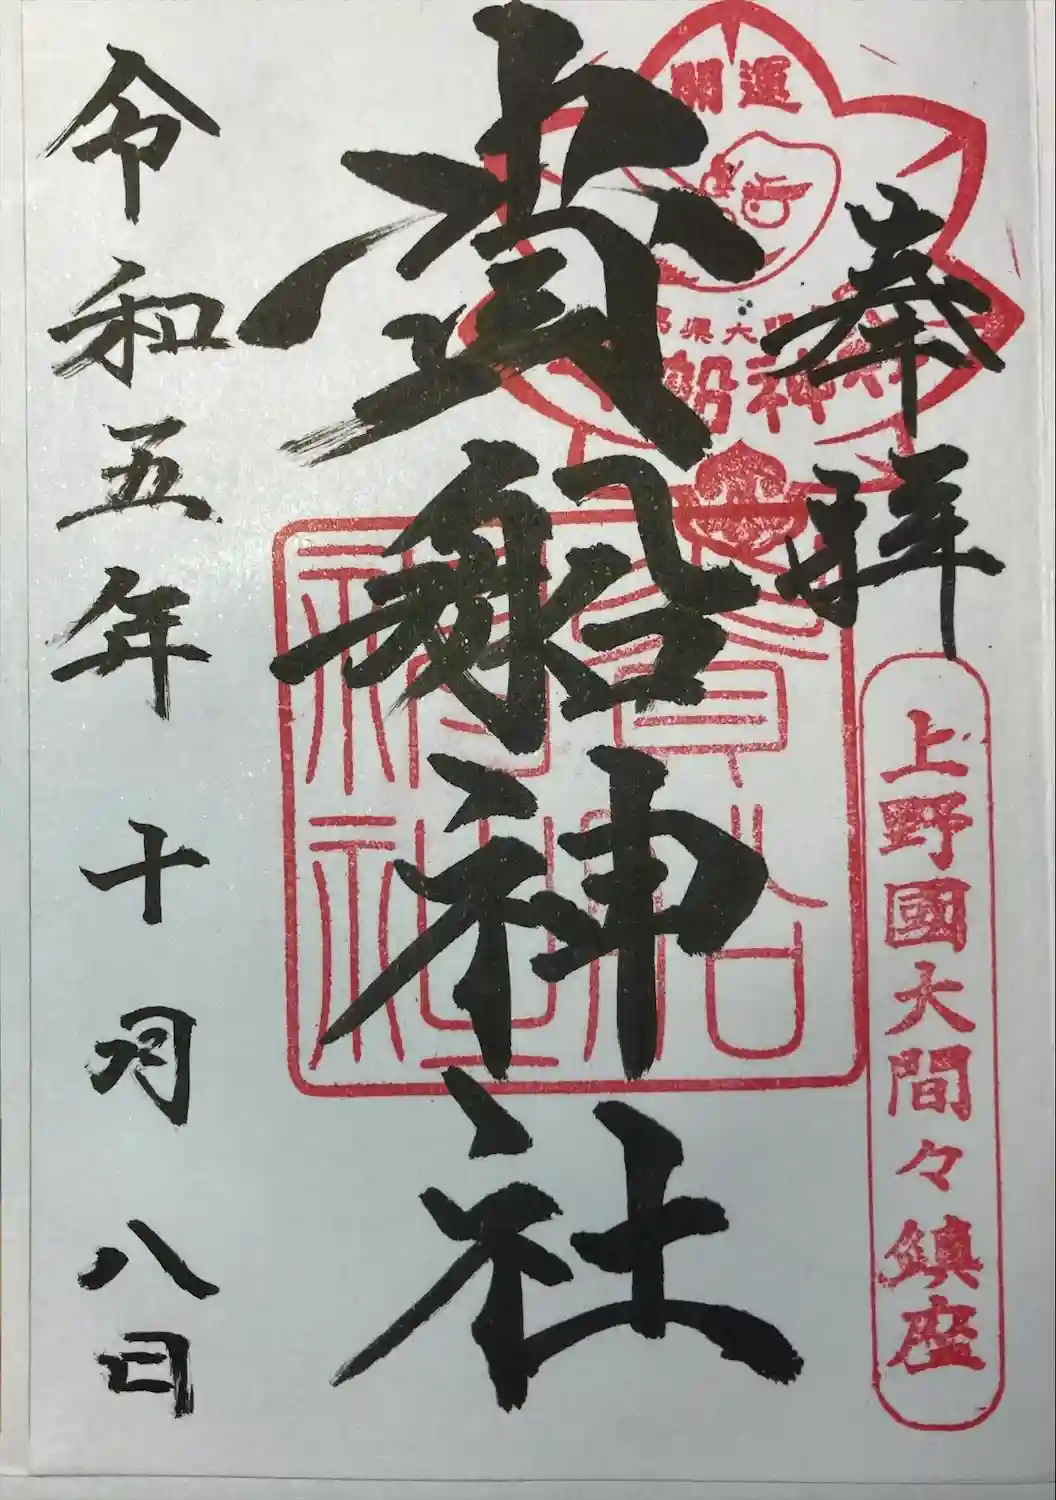 奉拝
上野國大間々鎮座
開運
県大間
船神社
貴船神社
令和五年十月八日